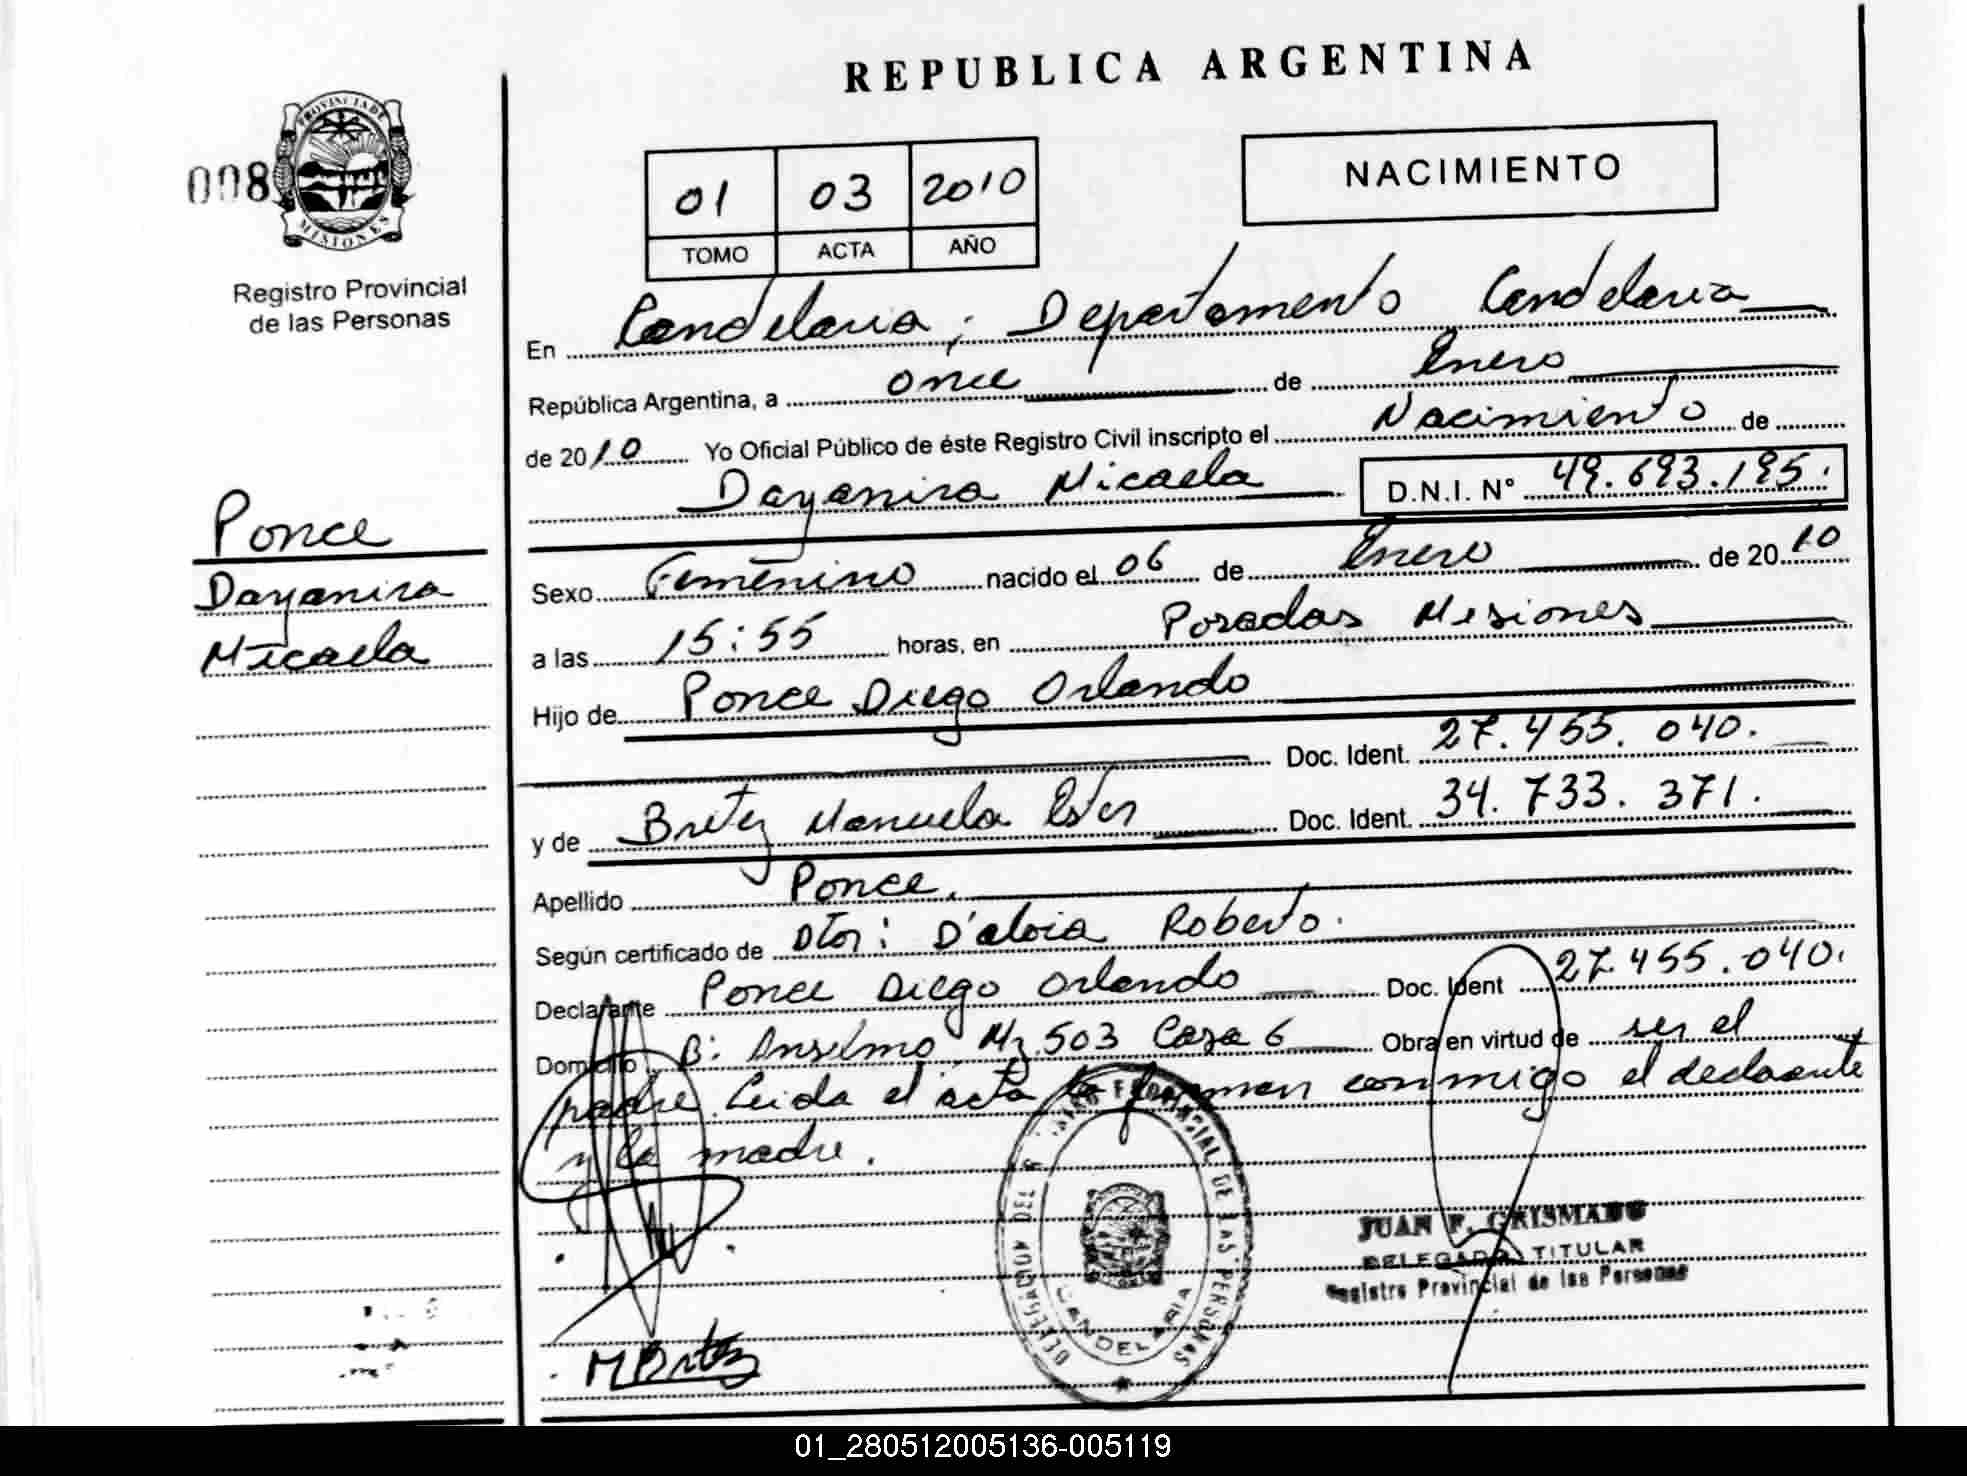 REPUBLICA ARGENTINA
008
PROVINCIA DE
MISIONES
Registro Provincial
de las Personas
01 03 2010
TOMO ACTA AÑO
NACIMIENTO
En Candelaria, Departamento Candelaria
República Argentina, a once de Enero
de 2010 Yo Oficial Público de éste Registro Civil inscripto el Nacimiento de
Dayanira Micaela D.N.I. N° 49.693.195.
Ponce
Dayanira
Micaela
Sexo Femenino nacido el 06 de Enero de 2010
a las 15:55 horas, en Posadas Misiones
Hijo de Ponce Diego Orlando
Doc. Ident. 27.455.040.
y de Britez Manuela Ester Doc. Ident. 34.733.371.
Apellido Ponce.
Según certificado de Dtor: D'aloia Roberto.
Declarante Ponce Diego Orlando Doc. Ident 27.455.040.
Domicilio B: Anselmo Mz 503 Casa 6 Obra en virtud de ser el
padre. Leida el acta la firman conmigo el declarante
y la madre.
DELEGADO DEL REGISTRO PROVINCIAL DE LAS PERSONAS
CANDELARIA
JUAN F. GRISMADO
DELEGADO TITULAR
Registro Provincial de las Personas
MBritez
01_280512005136-005119